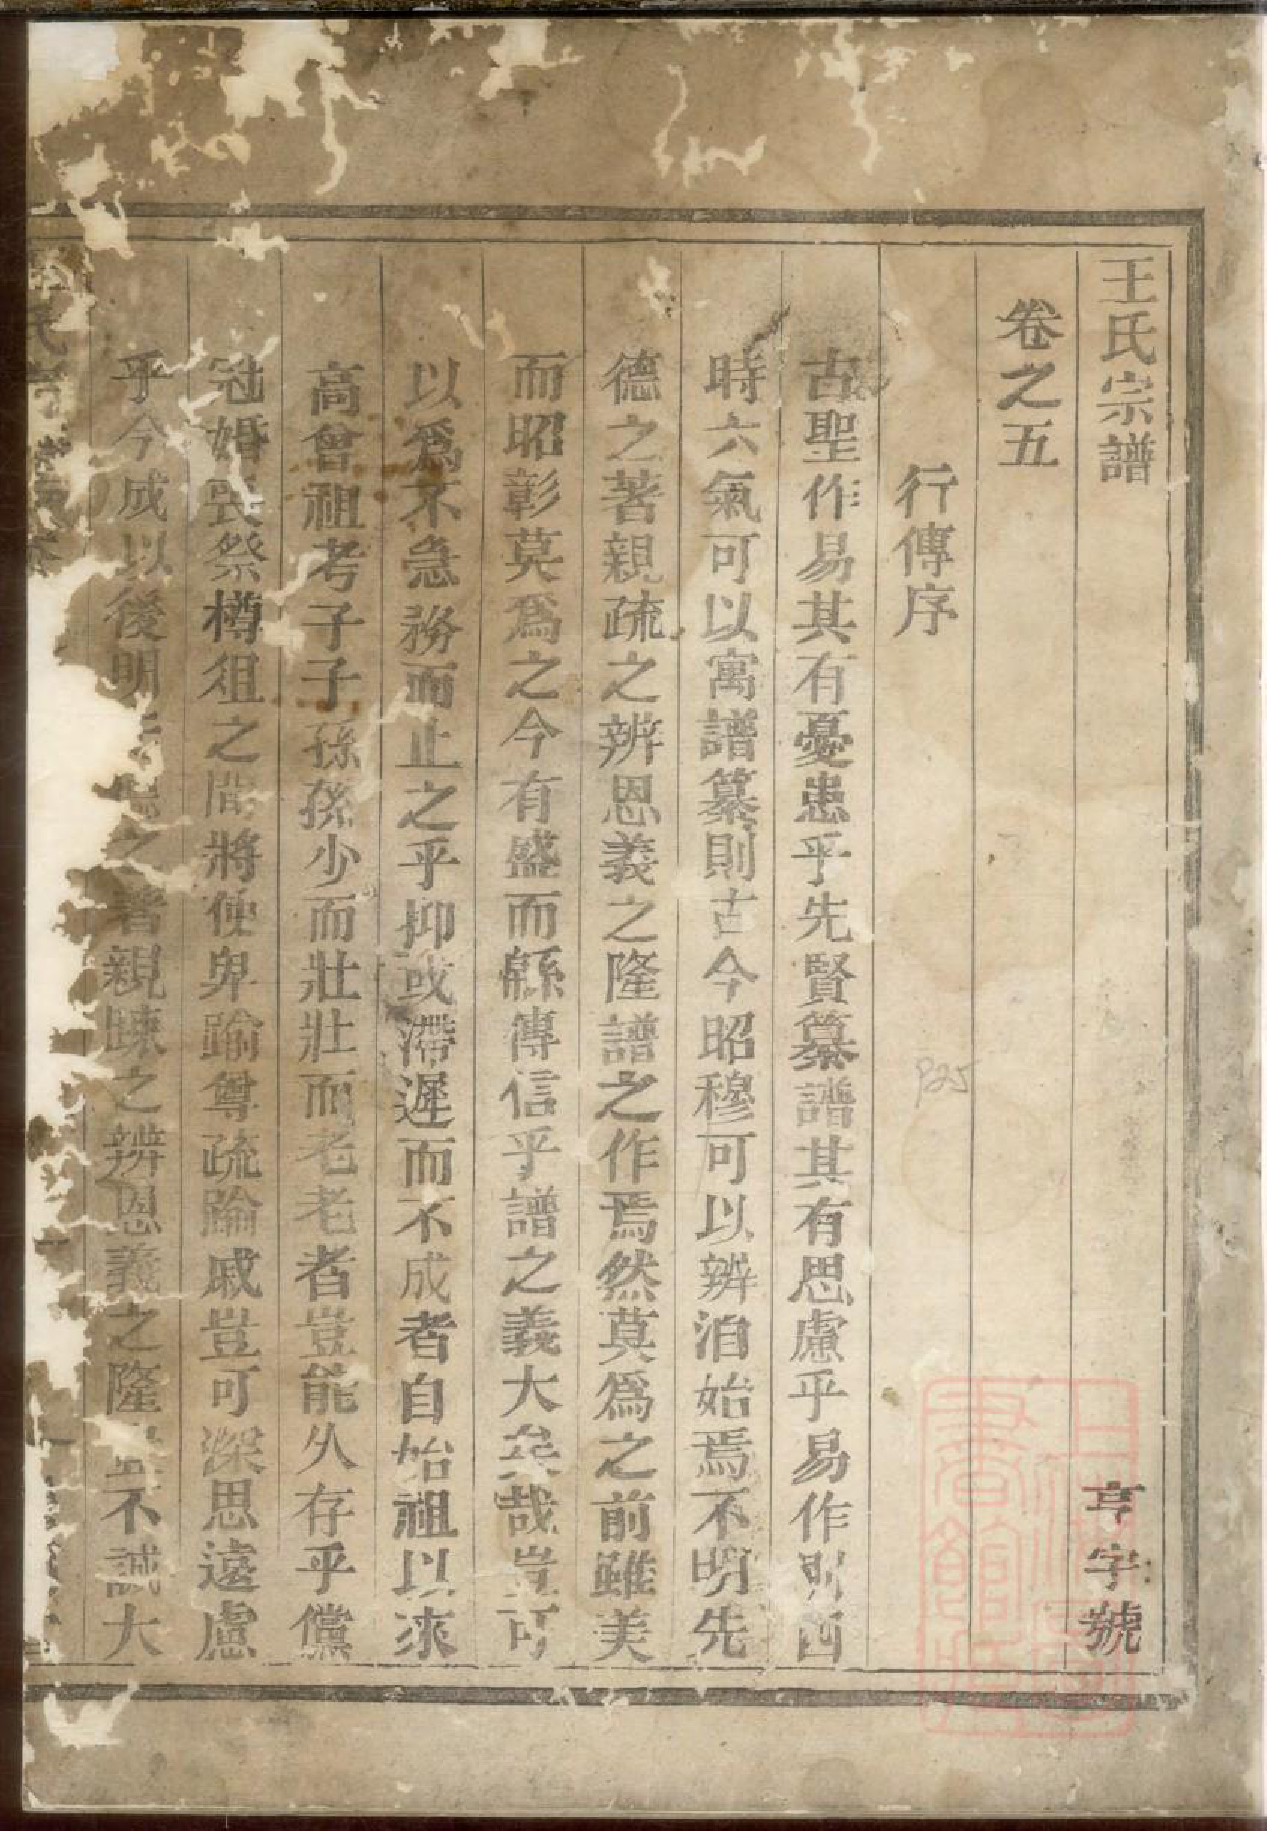 王氏宗譜 亨字號
卷之五
行傳序
古聖作易其有憂患乎先賢纂譜其有思慮乎易作則四
時六氣可以寓譜纂則古今昭穆可以辨洎始焉不明先
德之著親疏之辨恩義之隆譜之作焉然莫爲之前雖美
而昭彰莫爲之今有盛而緜傳信乎譜之義大矣哉豈可
以爲不急務而止之乎抑或滯遲而不成者自始祖以來
高曾祖考子子孫孫少而壯壯而老老者豈能久存乎儻
冠婚喪祭樽俎之間將使卑踰尊疏踰戚豈可深思遠慮
乎今成以後明先德之著親疎之辨恩義之隆豈不誠大
上海圖書館藏
P25